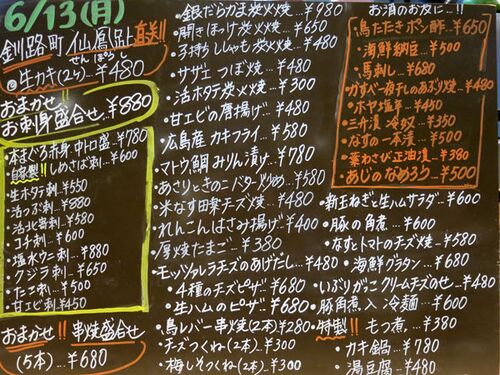 6/13(月)
釧路町 仙鳳趾 直送!!
せんぽうし
生カキ(2ケ)…¥480
おまかせ!!
お刺身盛合せ…¥880
本まぐろ赤身・中トロ盛…¥780
自家製!! しめさば刺…¥600
生ホタテ刺…¥550
活つぶ刺…¥880
活北寄刺…¥580
コチ刺…¥600
塩水ウニ刺…¥880
クジラ刺…¥650
たこ刺…¥500
甘エビ刺…¥450
おまかせ!! 串焼盛合せ
(5本)…¥680
・銀だらかま炭火焼…¥980
・開きほっけ炭火焼…¥500
・子持ちししゃも炭火焼…¥480
・サザエ つぼ焼…¥480
・活ホタテ炭火焼…¥400
・甘エビの唐揚げ…¥480
・広島産 カキフライ…¥580
・マトウ鯛 みりん漬け…¥780
・あさりときのこバター炒め…¥580
・米なす田楽チーズ焼…¥480
・れんこんはさみ揚げ…¥400
・厚焼たまご…¥380
・モッツァレラチーズのあげだし…¥480
・4種のチーズピザ…¥680
・生ハムのピザ…¥680
・鳥レバー串焼(2本)¥280
・チーズつくね(2本)…¥300
・梅しそつくね(2本)…¥300
お酒のお友に!!
・鳥たたきポン酢…¥650
・海鮮納豆…¥500
・馬刺し…¥680
・かすべ一夜干しのあぶり焼…¥480
・ホヤ塩辛…¥450
・三升漬 冷奴…¥350
・なすの一本漬…¥500
・葉わさび正油漬…¥380
・あじのなめろう…¥500
・新玉ねぎと生ハムサラダ…¥600
・豚の角煮…¥600
・なすとトマトのチーズ焼…¥580
・海鮮グラタン…¥680
・いぶりがっこクリームチーズのせ…¥480
・豚角煮入 冷麺…¥600
・特製!! もつ煮…¥380
・カキ鍋…¥780
・湯豆腐…¥480